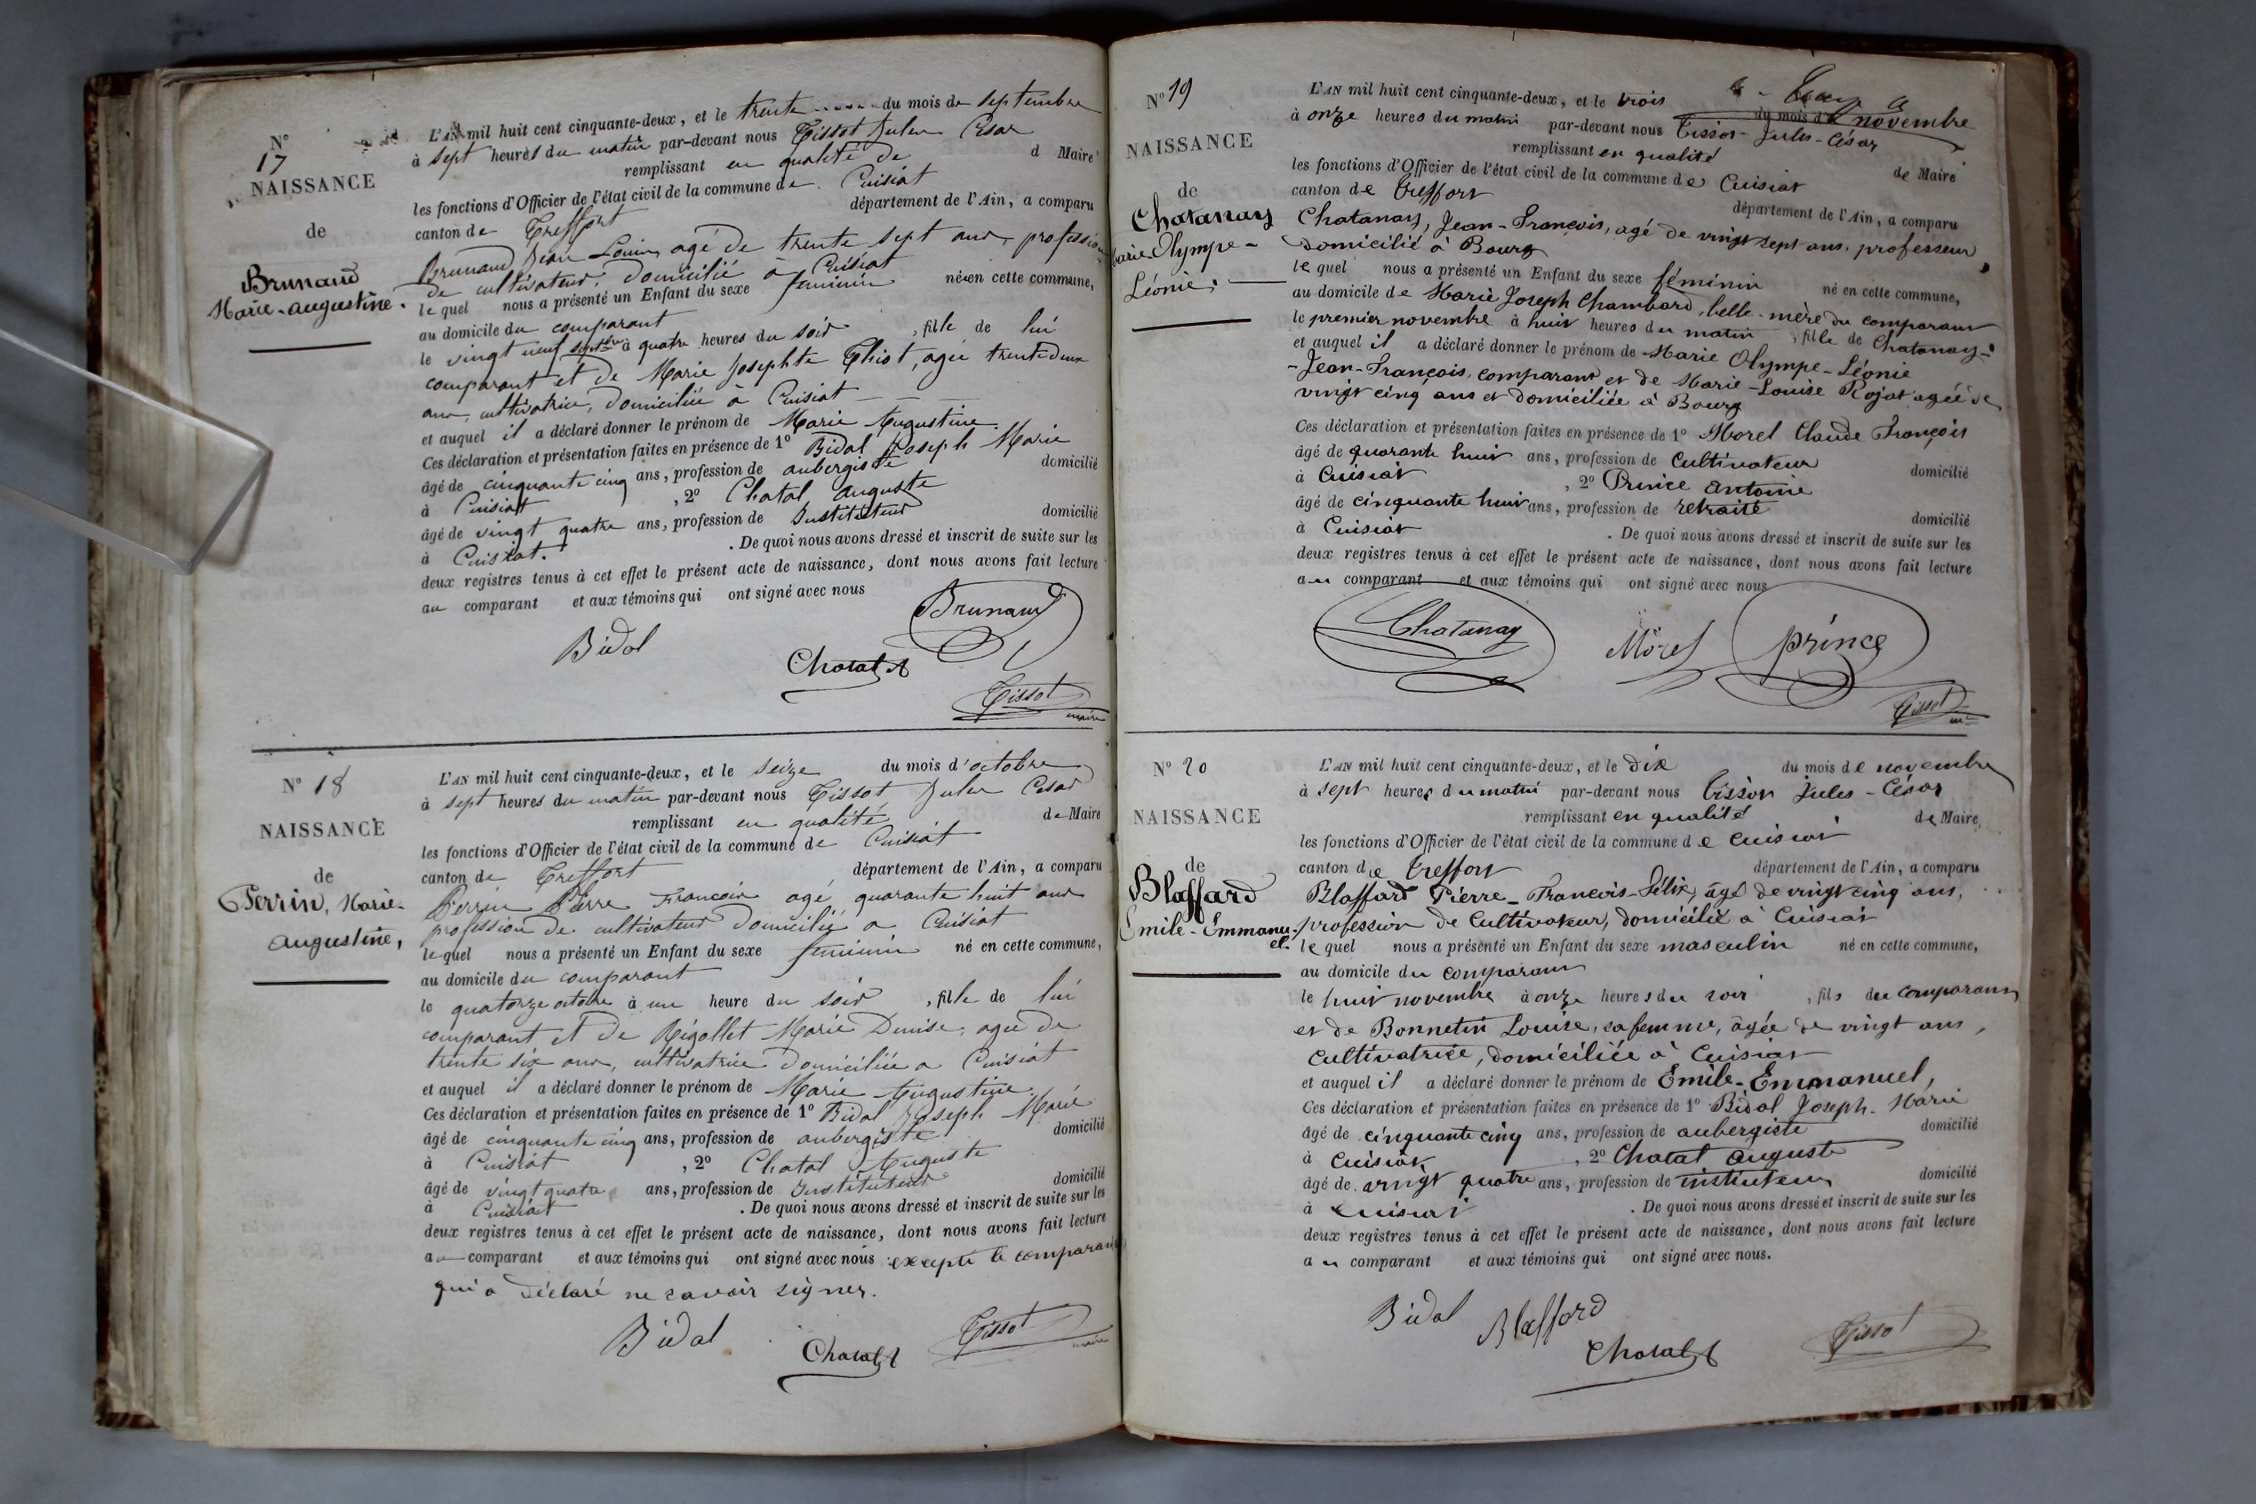 N° 17
NAISSANCE
de
Brunaud
Marie-augustine.
L'AN mil huit cent cinquante-deux, et le trente du mois de septembre
à sept heures du matin par-devant nous Tissot Jules Cesar
remplissant en qualité de d Maire
les fonctions d'Officier de l'état civil de la commune de Cuisiat
canton de Treffort département de l'Ain, a comparu
Brunaud Jean Louis, agé de trente sept ans, profession
de cultivateur, domicilié à Cuisiat
lequel nous a présenté un Enfant du sexe feminin né en cette commune,
au domicile du comparant
le vingt neuf septbre à quatre heures du soir, fille de lui
comparant et de Marie Josephte Thiot, agée trente deux
ans, cultivatrice, domiciliée à Cuisiat
et auquel il a déclaré donner le prénom de Marie Augustine.
Ces déclaration et présentation faites en présence de 1° Bidal Joseph Marie
âgé de cinquante cinq ans, profession de aubergiste domicilié
à Cuisiat, 2° Chatal auguste
âgé de vingt quatre ans, profession de Instituteur domicilié
à Cuisiat. De quoi nous avons dressé et inscrit de suite sur les
deux registres tenus à cet effet le présent acte de naissance, dont nous avons fait lecture
au comparant et aux témoins qui ont signé avec nous
Brunaud
Bidal
Chatal
Tissot
maire
N° 18
NAISSANCE
de
Perrin, Marie-
augustine,
L'AN mil huit cent cinquante-deux, et le seize du mois d'octobre
à sept heures du matin par-devant nous Tissot Jules Cesar
remplissant en qualité de Maire
les fonctions d'Officier de l'état civil de la commune de Cuisiat
canton de Treffort département de l'Ain, a comparu
Perrin Pierre Francois agé quarante huit ans
profession de cultivateur domicilié a Cuisiat
lequel nous a présenté un Enfant du sexe feminin né en cette commune,
au domicile du comparant
le quatorze octobre à un heure du soir, fille de lui
comparant et de Rigollet Marie Denise, agée de
trente six ans, cultivatrice domiciliée a Cuisiat
et auquel il a déclaré donner le prénom de Marie Augustine.
Ces déclaration et présentation faites en présence de 1° Bidal Joseph Marie
âgé de cinquante cinq ans, profession de aubergiste domicilié
à Cuisiat, 2° Chatal Auguste
âgé de vingt quatre ans, profession de Instituteur domicilié
à Cuisiat. De quoi nous avons dressé et inscrit de suite sur les
deux registres tenus à cet effet le présent acte de naissance, dont nous avons fait lecture
au comparant et aux témoins qui ont signé avec nous excepté le comparant
qui a déclaré ne savoir signer.
Bidal
Chatal
Tissot
maire
N° 19
NAISSANCE
de
Chatanay
Marie Olympe-
Léonie.
L'AN mil huit cent cinquante-deux, et le trois du mois de novembre
à onze heures du matin par-devant nous Tissot-Jules-César
remplissant en qualité de Maire
les fonctions d'Officier de l'état civil de la commune de Cuisiat
canton de Treffort département de l'Ain, a comparu
Chatanay, Jean-François, agé de vingt sept ans, professeur,
domicilié à Bourg
lequel nous a présenté un Enfant du sexe féminin né en cette commune,
au domicile de Marie Joseph Chambard, belle-mère du comparant
le premier novembre à huit heures du matin, fille de Chatanay-
-Jean-François, comparant et de Marie-Louise Rojat agée de
vingt cinq ans et domiciliée à Bourg
et auquel il a déclaré donner le prénom de Marie Olympe-Léonie
Ces déclaration et présentation faites en présence de 1° Morel Claude François
âgé de quarante huit ans, profession de Cultivateur domicilié
à Cuisiat, 2° Prince antoine
âgé de cinquante huit ans, profession de retraité domicilié
à Cuisiat. De quoi nous avons dressé et inscrit de suite sur les
deux registres tenus à cet effet le présent acte de naissance, dont nous avons fait lecture
au comparant et aux témoins qui ont signé avec nous
Chatanay
Morel
prince
Tissot
N° 20
NAISSANCE
de
Blaffard
Emile-Emmanu-
el.
L'AN mil huit cent cinquante-deux, et le dix du mois de novembre
à sept heures du matin par-devant nous Tissot Jules-César
remplissant en qualité de Maire
les fonctions d'Officier de l'état civil de la commune de Cuisiat
canton de Treffort département de l'Ain, a comparu
Blaffard Pierre-François-Félix, âgé de vingt cinq ans,
profession de Cultivateur, domicilié à Cuisiat
lequel nous a présenté un Enfant du sexe masculin né en cette commune,
au domicile du comparant
le huit novembre à onze heures du soir, fils du comparant
et de Bonnetin Louise, sa femme, âgée de vingt ans,
cultivatrice, domiciliée à Cuisiat
et auquel il a déclaré donner le prénom de Emile-Emmanuel,
Ces déclaration et présentation faites en présence de 1° Bidal Joseph-Marie
âgé de cinquante cinq ans, profession de aubergiste domicilié
à Cuisiat, 2° Chatal auguste
âgé de vingt quatre ans, profession de instituteur domicilié
à Cuisiat. De quoi nous avons dressé et inscrit de suite sur les
deux registres tenus à cet effet le présent acte de naissance, dont nous avons fait lecture
au comparant et aux témoins qui ont signé avec nous.
Bidal
Blaffard
Chatal
Tissot